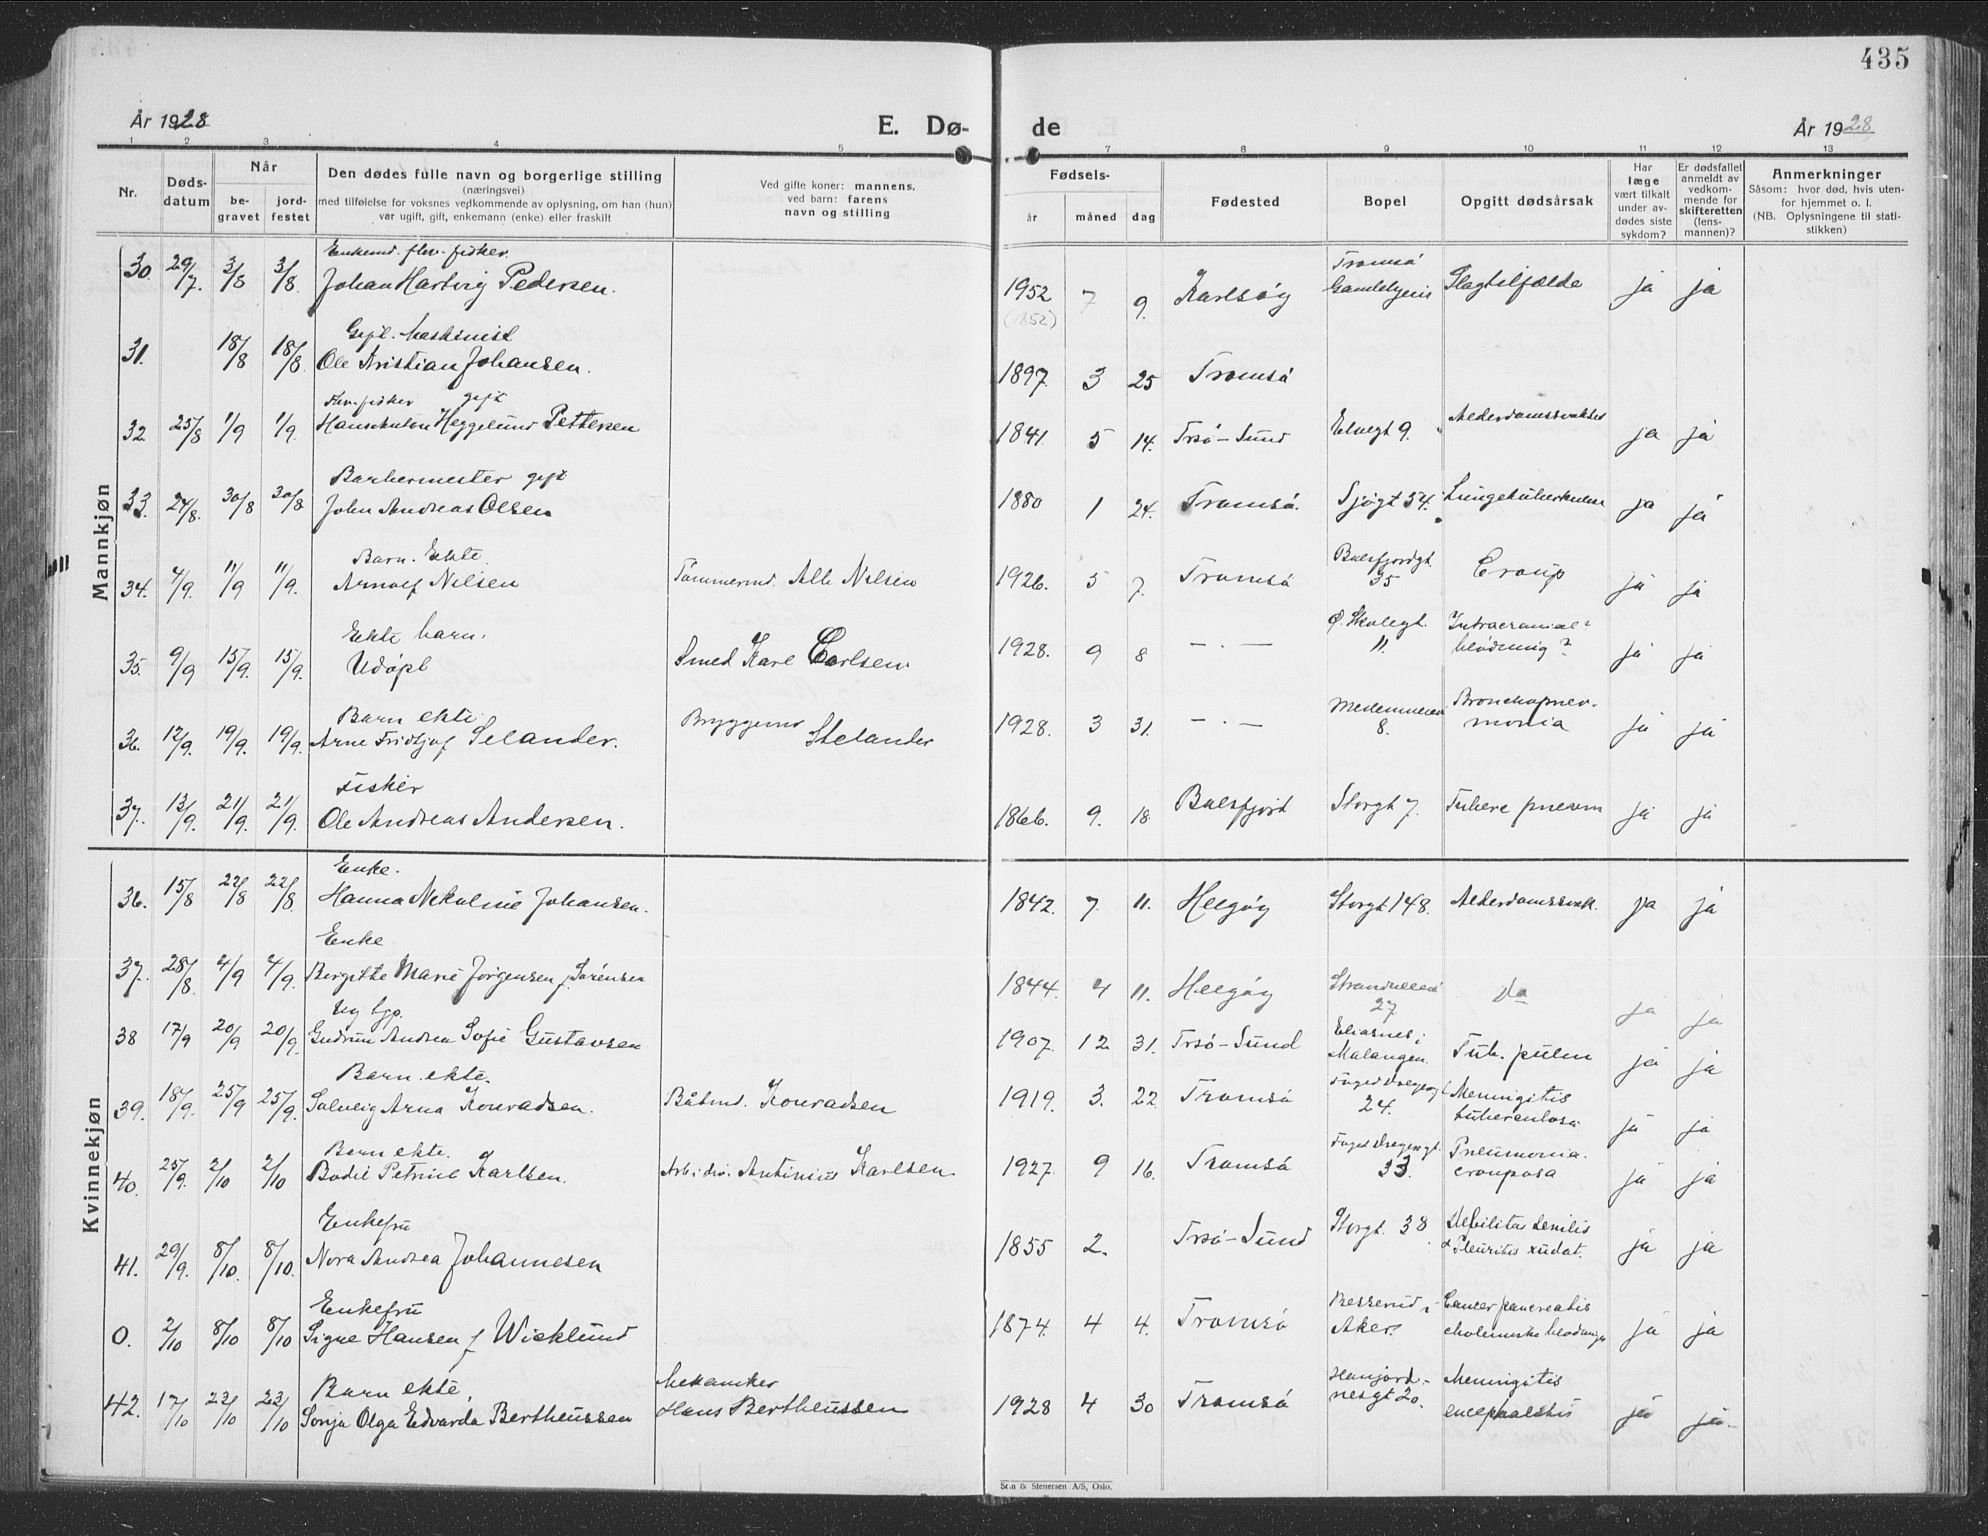 435
År 1928
E. Dø-
de
År 1928
1 2 3 4 5 7 8 9 10 11 12 13
Nr.
Døds-
datum
Når
be-
gravet
jord-
festet
Den dødes fulle navn og borgerlige stilling
(næringsvei)
med tilføielse for voksnes vedkommende av oplysning, om han (hun)
var ugift, gift, enkemann (enke) eller fraskilt
Ved gifte koner: mannens,
ved barn: farens
navn og stilling
Fødsels-
år måned dag
Fødested
Bopel
Opgitt dødsårsak
Har
læge
vært tilkalt
under av-
dødes siste
sykdom?
Er dødsfallet
anmeldt av
vedkom-
mende for
skifteretten
(lens-
mannen)?
Anmerkninger
Såsom: hvor død, hvis uten-
for hjemmet o. l.
(NB. Oplysningene til stati-
stikken)
Mannkjøn
Enkemd. fhv. fisker
30. 29/7. 3/8 3/8. Johan Hartvig Pedersen. 1952 7 9. Karlsøy Tromsö Gamlehjem Slagtilfælde ja ja
(1852)
Gift. Maskinist
31. 18/8 18/8. Ole Kristian Johansen. 1897. 3 25 Tromsö
Fhv. fisker gift
32 25/8 1/9 1/9. Hans Anton Heggelund Pettersen 1841 5 14. Trsö-Sund Elvegt 9. Alderdomssvakhet ja ja
Barbermester gift
33. 24/8. 30/8 30/8 John Andreas Olsen 1880 1 24. Tromsö. Sjøgt 34. Lungetuberkulose ja ja
Barn. Ekte.
34. 4/9. 11/9 11/9. Arnolf Nilsen Tömmermd. Alb Nilsen 1926. 5 7. Tromsö Balsfjordgt 35 Croup ja ja
Ekte barn.
35. 9/9 15/9. 15/9. Udøpt Smed Karl Carlsen 1928. 9 8 — . — Ø. Skolegt. 11. Intracranial? blödning? ja ja
Barn ekte
36. 12/9. 19/9. 19/9. Arne Fridtjof Selander. Bryggermd Stelander 1928. 3 31. — . — 8. Bronchopneu-
monia ja ja
Fisker
37. 13/9. 21/9. 21/9. Ole Andreas Andersen. 1866. 9. 18 Balsfjord Storgt 7. Tuberc pneum ja ja
Kvinnekjøn
Enke.
36. 15/8 22/8 22/8. Hanna Nikoline Johansen. 1842. 7. 11. Helgøy Storgt 148. Alderdomssvak. ja ja
Enke
37. 28/8. 4/9 4/9. Birgitte Marie Jørgensen f. Sørensen 1844. 4 11. Helgøy Strandveien 27 Do ja ja
Ug hjp.
38 17/9 20/9 20/9. Gudrun Andrea Sofie Gustavsen 1907. 12 31. Trsö-Sund Eliasnes i Malangen. Tub. pulm ja ja
Barn ekte.
39. 18/9. 25/9 25/9. Solveig Arna Konradsen. Båtmd. Konradsen 1919. 3. 22 Tromsö 24. Meningitis
tuberculosa ja ja
Barn ekte.
40. 25/9. 2/10 2/10 Bodil Petrine Karlsen. Antinius Karlsen 1927. 9 16. Tromsö 33. Pneumonia.
crouposa ja ja
Enkefru
41. 29/9. 8/10. 8/10. Nora Andrea Johannesen 1855 2. Trsö-Sund Storgt. 38 Debilitas senilis
& Pleuritis xudat. ja ja
Enkefru
0. 2/10 8/10 8/10 Signe Hansen f Wicklund 1874. 4 4. Tromsö Besserud i Aker. Cancer pancreatis
cholemiske blødninger ja ja
Barn ekte.
42. 17/10 23/10 23/10 Sonja Olga Edvarda Bertheussen Mekaniker
Hans Bertheussen 1928 4 30 Tromsö Hansjord-
nesgt 20. Meningitis
encephalitis ja ja.
Sten & Stenersen A/S, Oslo.